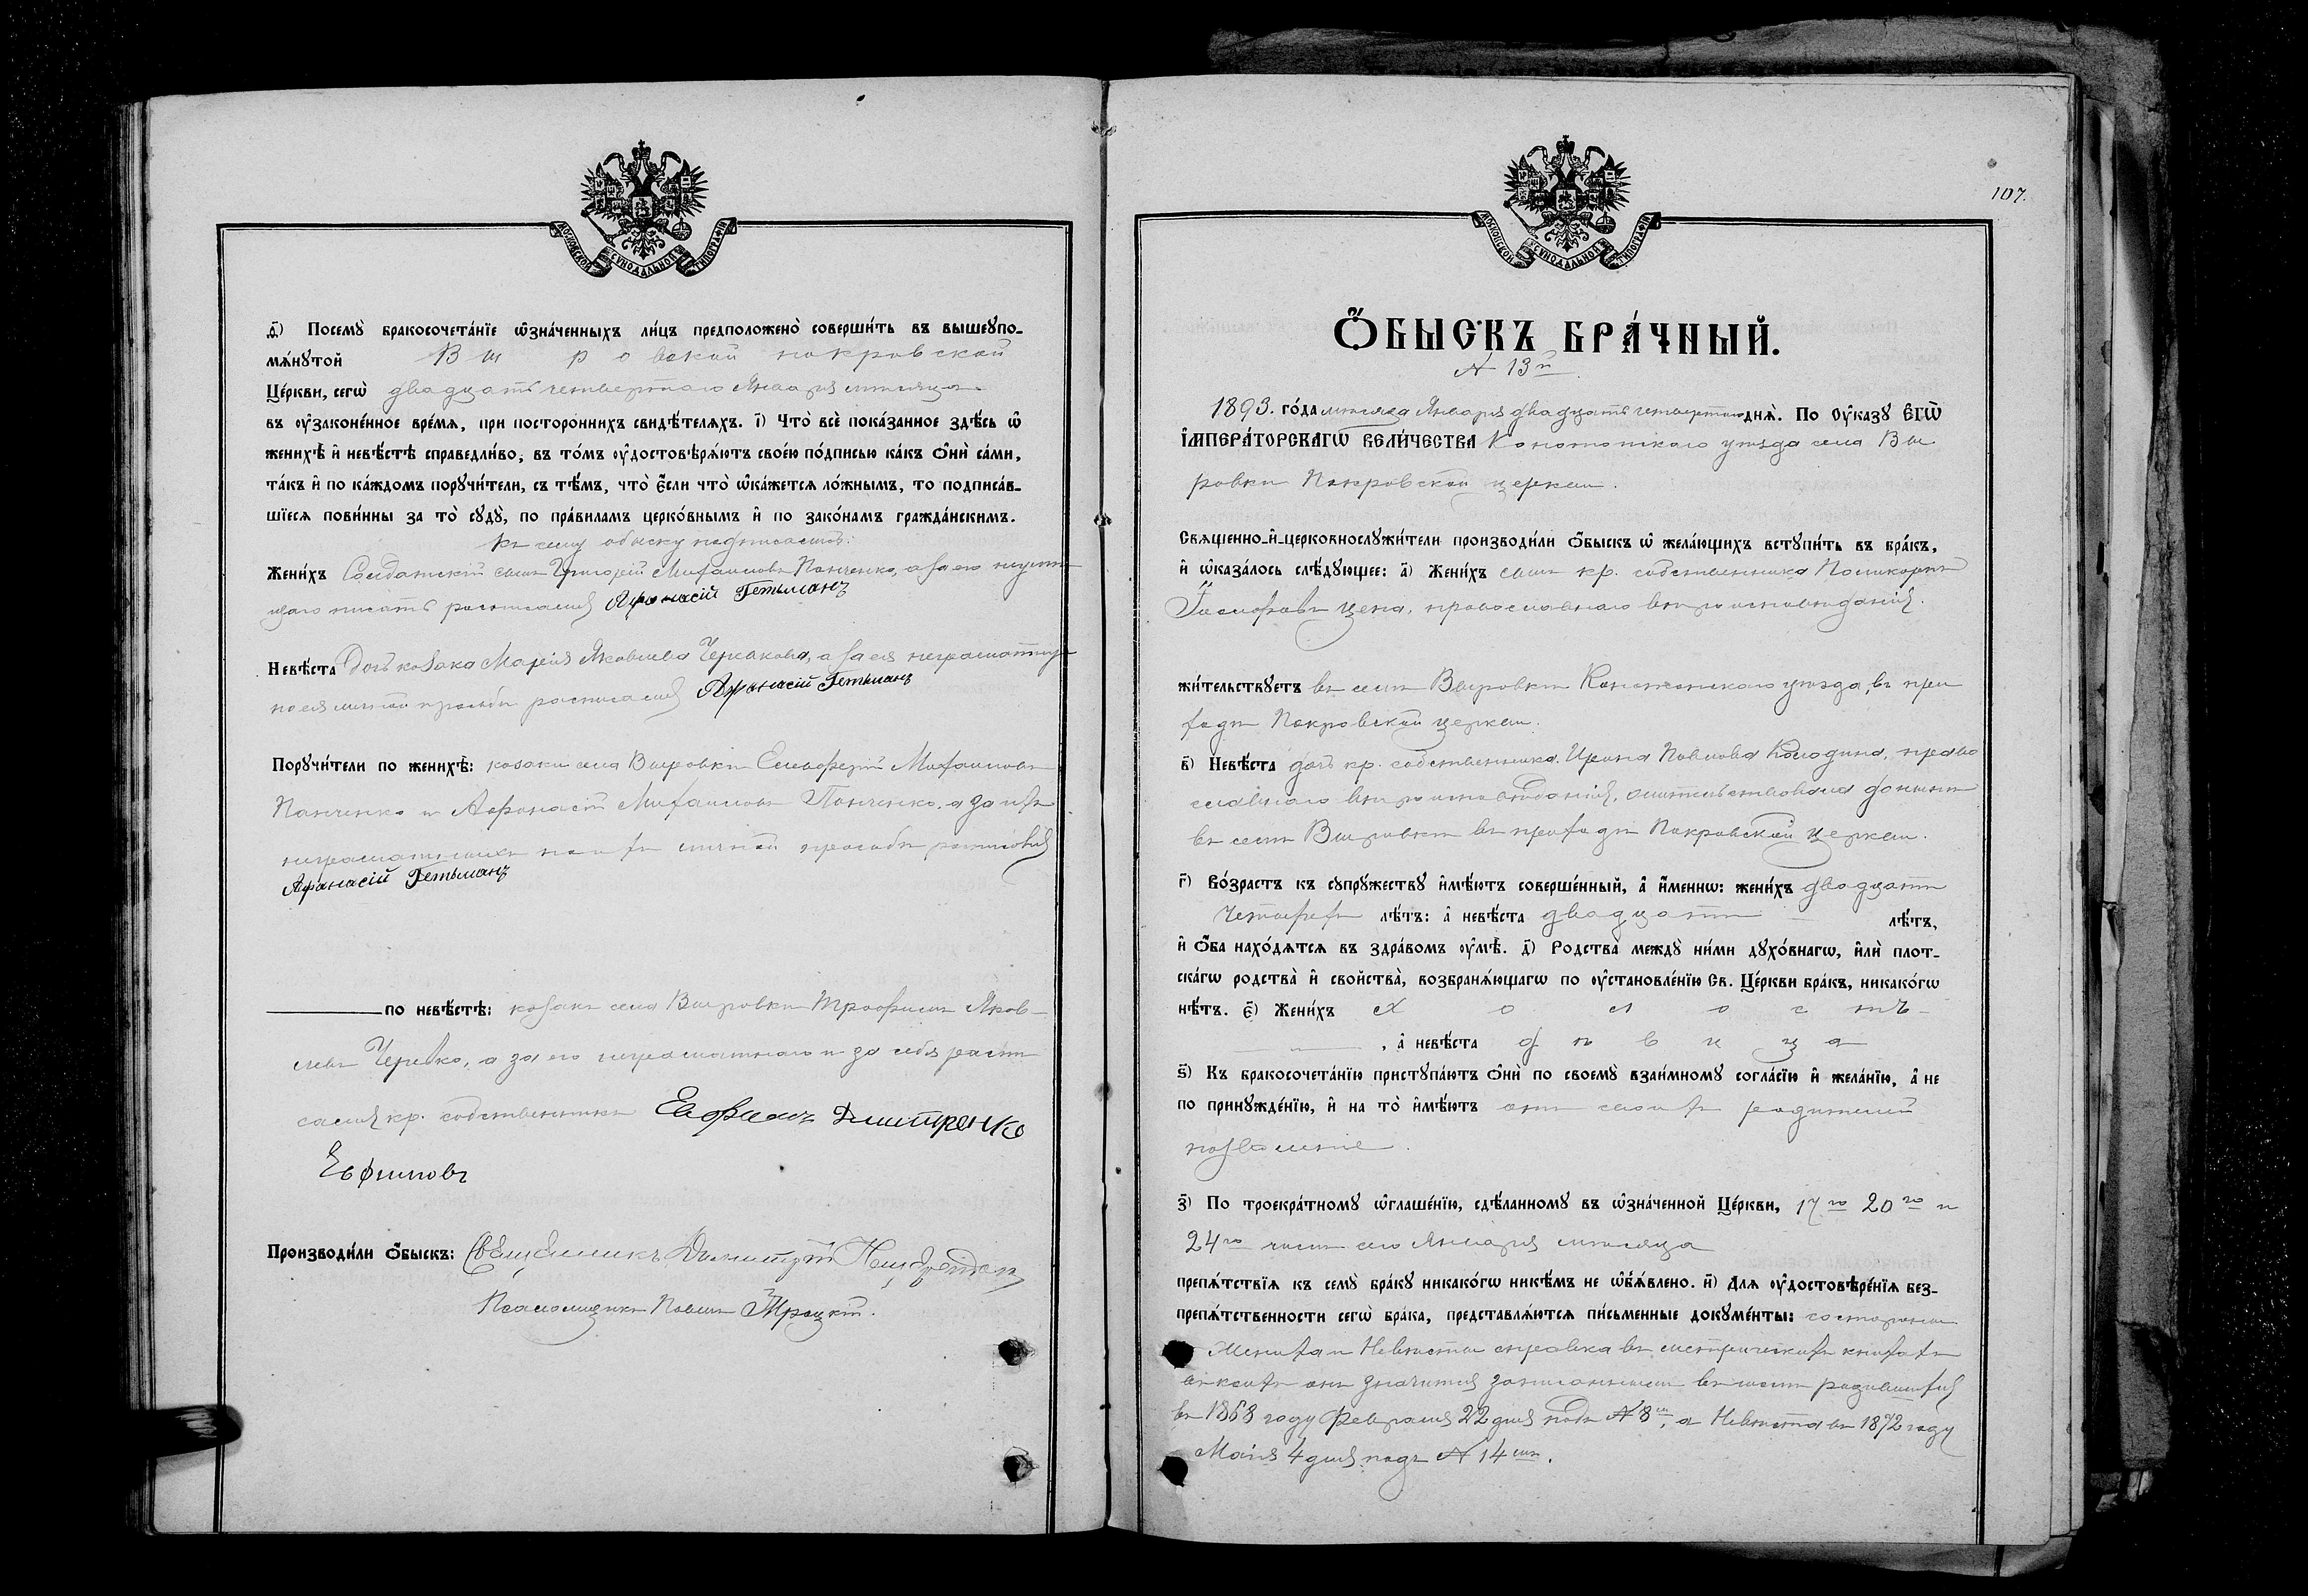 МОСКОВСКОЙ СѴНОДАЛЬНОЙ ТИПОГРАФІИ
ѳ҃) Посемꙋ̀ бракосочета́нїе ѡ҆зна́ченныхъ ли́цъ предположено̀ соверши́ть въ вышеꙋпо-
мѧ́нꙋтой Вы ро вской покровской
Це́ркви, сегѡ̀ двадцать четвертаго Января мѣсяца
въ ᲂу҆законе́нное вре́мѧ, при посторо́ннихъ свидѣ́телѧхъ. і҃) Что̀ всѐ пока́занное здѣ́сь ѡ҆
женихѣ̀ и҆ невѣ́стѣ справедли́во, въ то́мъ ᲂу҆достовѣрѧ́ютъ свое́ю по́дписью ка́къ ѻ҆нѝ са́ми,
та́къ и҆ по ка́ждомъ порꙋчи́тели, съ тѣ́мъ, что̀ є҆́сли что̀ ѡ҆ка́жетсѧ ло́жнымъ, то подписа́в-
шїесѧ пови́нны за то̀ сꙋдꙋ̀, по пра́виламъ церко́внымъ и҆ по зако́намъ гражда́нскимъ.
Къ сему обыску подписались:
Жени́хъ Солдатскій сынъ Григорій Михаиловъ Панченко, а за его неумѣ-
щаго писать росписался Афонасій Гетьманъ
Невѣ́ста Дочь козака Марія Яковлева Черкакова, а за ея неграмотную
по ея личной просьбѣ росписался Афонасій Гетьманъ
Порꙋчи́тели по женихѣ̀: козаки села Выровки Елевферій Михаиловъ
Панченко и Афонасій Михаиловъ Панченко, а за ихъ
неграмотныхъ по ихъ личной просьбѣ росписался
Афанасій Гетьманъ
по невѣ́стѣ: козакъ села Выровки Трофимъ Яков-
левъ, а за его неграмотнаго и за себя распи
сался кр. собственникъ Евфимъ Дмитренко
Евфимовъ
Производи́ли ѻ҆́быскъ: Священникъ Димитрій
Псаломщикъ Павелъ Троцкій.
107.
МОСКОВСКОЙ СѴНОДАЛЬНОЙ ТИПОГРАФІИ
Ѻ҆́БЫСКЪ БРА́ЧНЫЙ.
№ 13й
1893. го́да мѣсяца Января двадцать четвертаго днѧ̀. По ᲂу҆ка́зꙋ Є҆ГѠ̀
І҆МПЕРА́ТОРСКАГѠ ВЕЛИ́ЧЕСТВА Конотопскаго уѣзда села Вы
ровки Покровской церкви.
Свѧще́нно-и҆-церковнослꙋжи́тели производи́ли ѻ҆́быскъ ѡ҆ жела́ющихъ встꙋпи́ть въ бра́къ,
и҆ ѡ҆каза́лось слѣ́дꙋющее: а҃) Жени́хъ сынъ кр. собственника Поликарпъ
православнаго вѣроисповѣданія.
жи́тельствꙋетъ въ селѣ Выровкѣ Конотопскаго уѣзда, въ при
ходѣ Покровской церкви.
в҃) Невѣ́ста дочь кр. собственника Ирина Павлова Колодина, право
славнаго вѣроисповѣданія, жительствовала донынѣ
въ селѣ Выровкѣ въ приходѣ Покровской церкви.
г҃) Во́зрастъ къ сꙋпрꙋ́жествꙋ и҆мѣ́ютъ соверше́нный, а҆ и҆́меннѡ: жени́хъ двадцати
четырехъ лѣ́тъ: а҆ невѣ́ста двадцати лѣ́тъ,
и҆ ѻ҆́ба нахо́дѧтсѧ въ здра́вомъ ᲂу҆мѣ̀. д҃) Родства̀ междꙋ̀ ни́ми дꙋхо́внагѡ, и҆лѝ плот-
ска́гѡ родства̀ и҆ свойства̀, возбранѧ́ющагѡ по ᲂу҆становле́нїю Св. Це́ркви бра́къ, никако́гѡ
нѣ́тъ. є҃) Жени́хъ х о л о с тъ
, а҆ невѣ́ста д ѣ в и ц а
ѕ҃) Къ бракосочета́нїю пристꙋпа́ютъ ѻ҆нѝ по своемꙋ̀ взаи́мномꙋ согла́сїю и҆ жела́нїю, а҆ не
по принꙋжде́нїю, и҆ на то̀ и҆мѣ́ютъ отъ своихъ родителей
позволеніе.
з҃) По троекра́тномꙋ ѡ҆глаше́нїю, сдѣ́ланномꙋ въ ѡ҆зна́ченной Це́ркви, 17го 20го и
24го чиселъ сего Января мѣсяца
препѧ́тствїѧ къ семꙋ̀ бра́кꙋ никако́гѡ никѣ́мъ не ѡ҆бъѧ́влено. и҃) Длѧ ᲂу҆достовѣре́нїѧ без-
препѧ́тственности сегѡ̀ бра́ка, представлѧ́ютсѧ пи́сьменные докꙋме́нты: со стороны
Жениха и Невѣсты справка въ метрическихъ книгахъ
въ коихъ онъ значится записаннымъ въ числѣ родившихся
въ 1868 году Февраля 22 дня подъ № 8м, а Невѣста въ 1872 году
Маія 4 дня подъ № 14мъ.